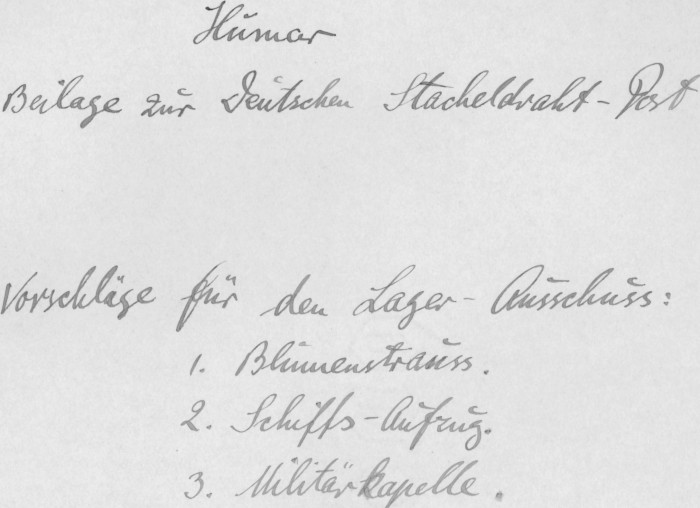 Humor
Beilage zur Deutschen Stacheldraht-Post
Vorschläge für den Lager-Ausschuss:
1. Blumenstrauss.
2. Schiffs-Aufzug.
3. Militärkapelle.